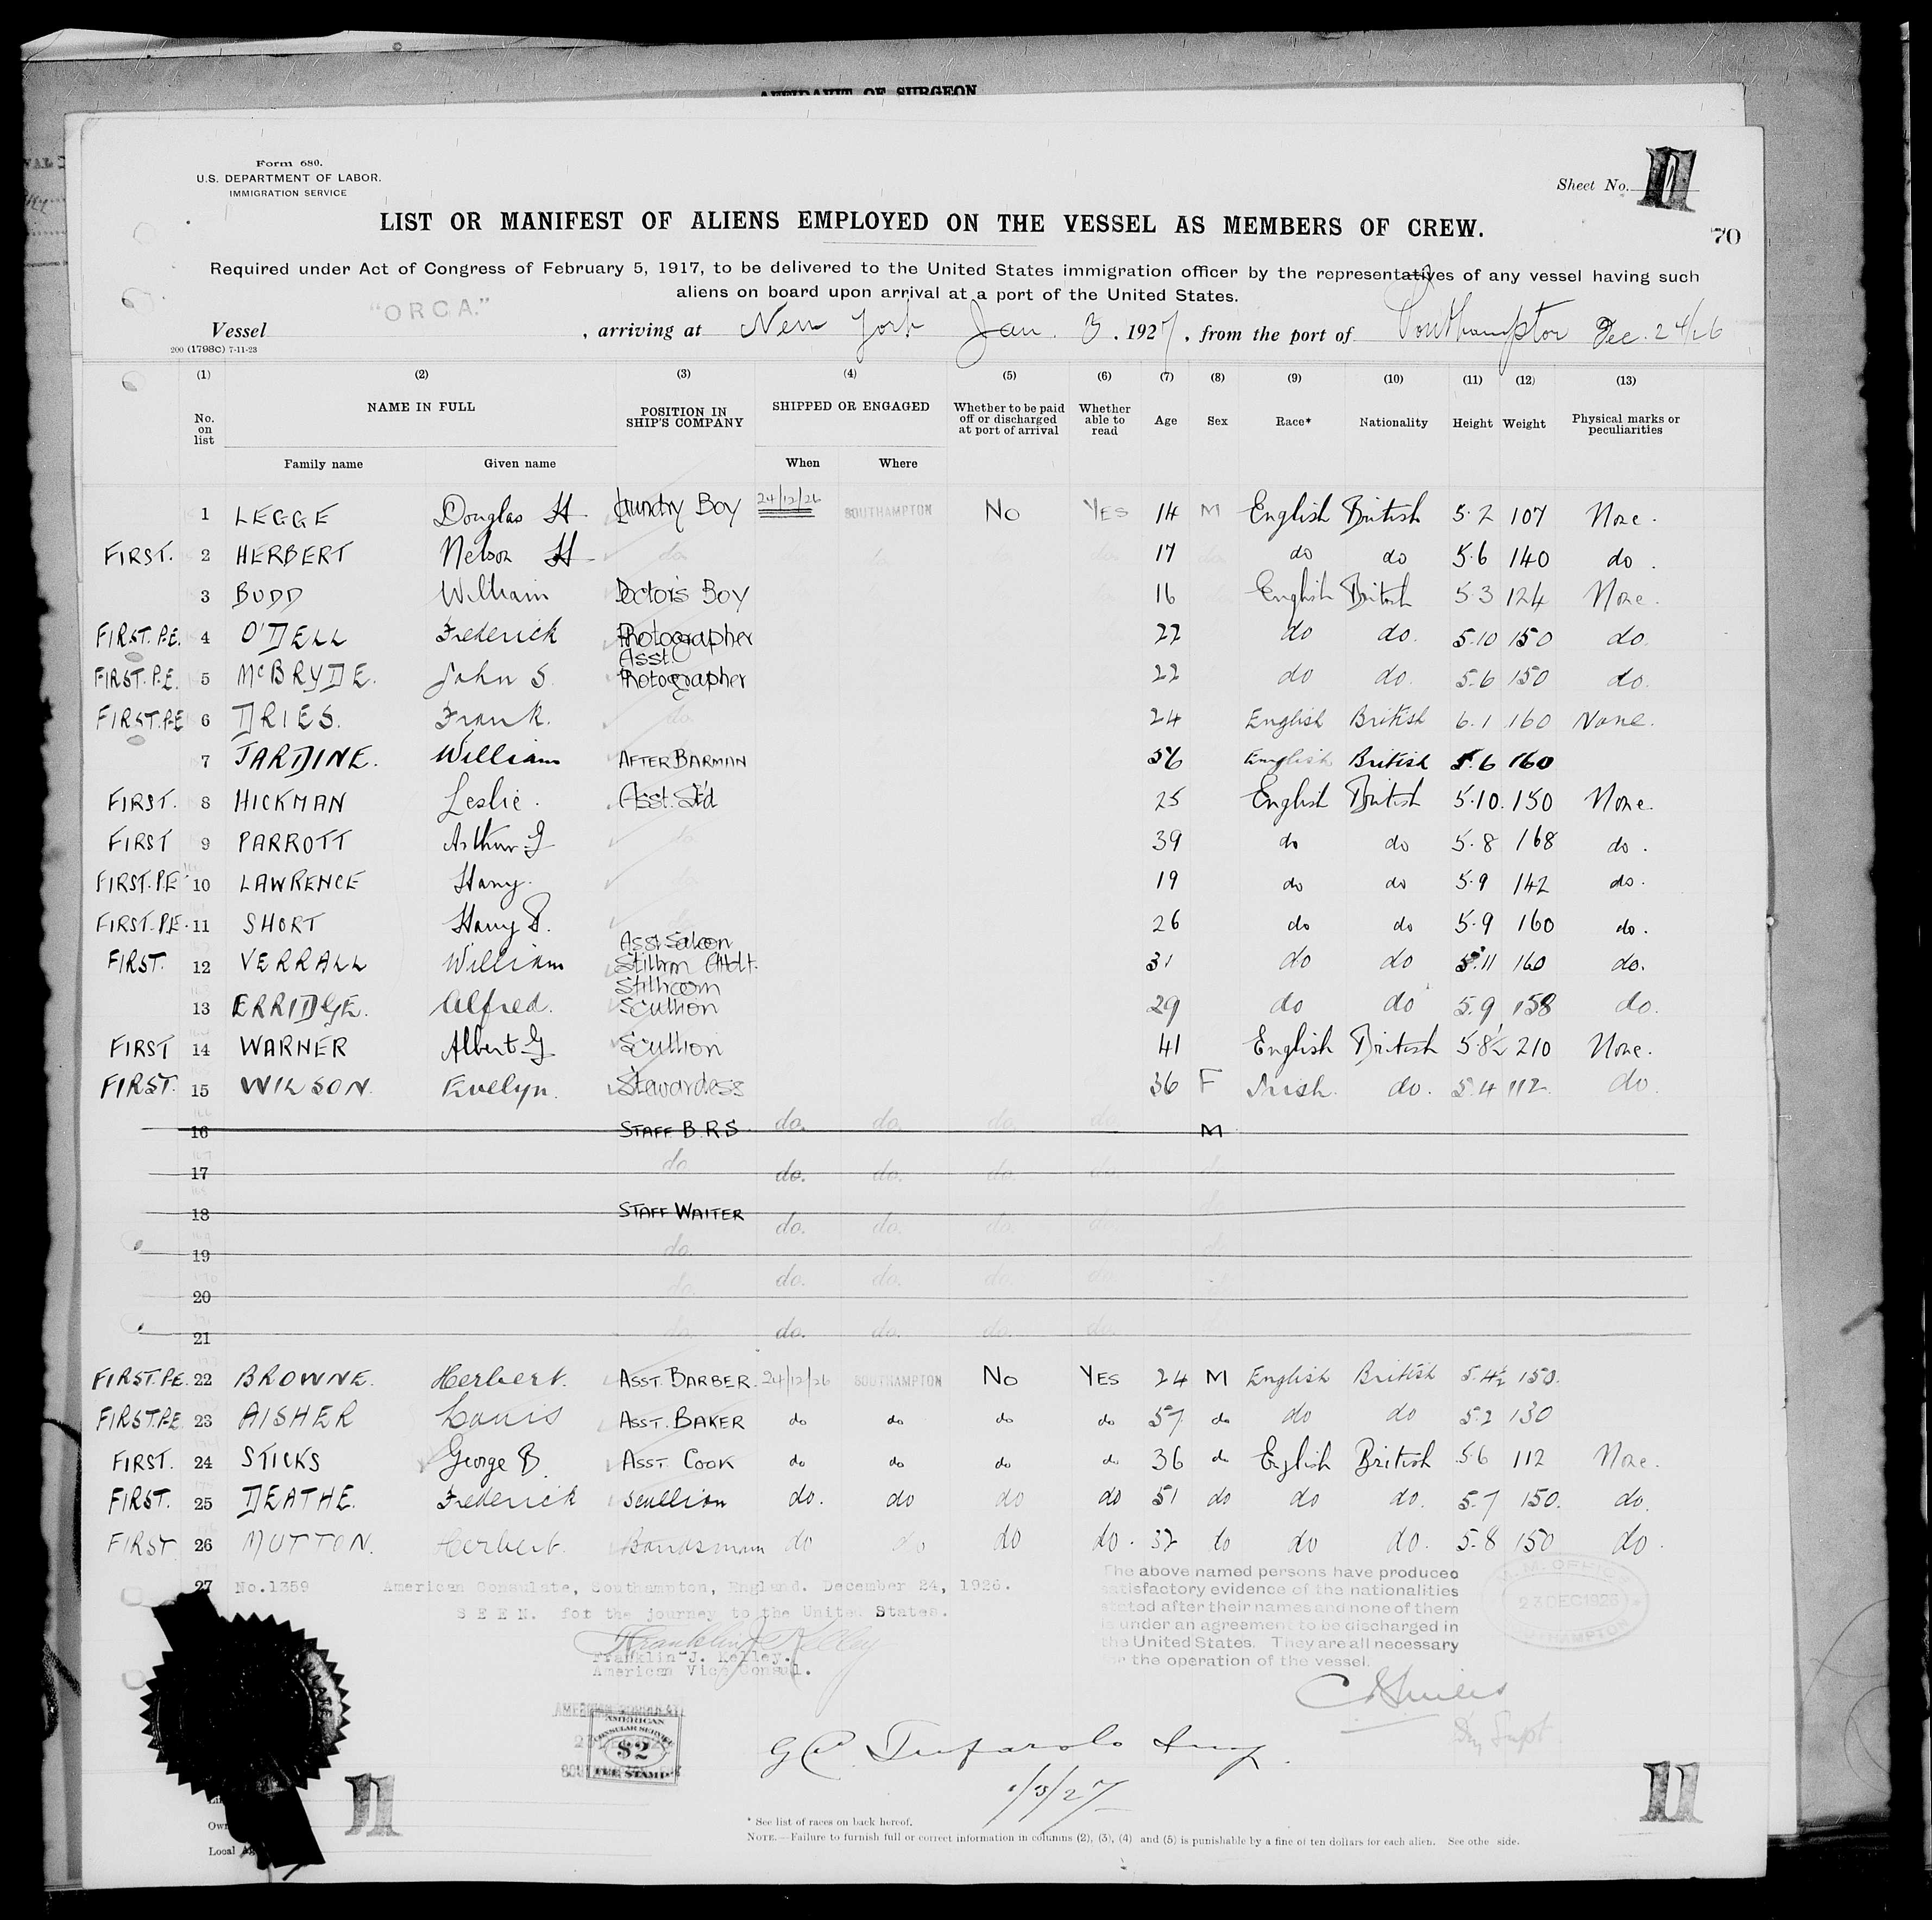 AFFIDAVIT OF SURGEON
Form 680.
U.S. DEPARTMENT OF LABOR.
IMMIGRATION SERVICE
Sheet No. 11
LIST OR MANIFEST OF ALIENS EMPLOYED ON THE VESSEL AS MEMBERS OF CREW.
70
Required under Act of Congress of February 5, 1917, to be delivered to the United States immigration officer by the representatives of any vessel having such
aliens on board upon arrival at a port of the United States.
Vessel "ORCA." , arriving at New York Jan. 3, 1927, from the port of Southampton Dec. 24/26
200 (1798C) 7-11-23
(1) (2) (3) (4) (5) (6) (7) (8) (9) (10) (11) (12) (13)
No. on list NAME IN FULL POSITION IN SHIP'S COMPANY SHIPPED OR ENGAGED Whether to be paid off or discharged at port of arrival Whether able to read Age Sex Race* Nationality Height Weight Physical marks or peculiarities
Family name Given name When Where
1 LEGGE Douglas H Laundry Boy 24/12/26 SOUTHAMPTON No YES 14 M English British 5.2 107 None.
FIRST. 2 HERBERT Nelson H do 17 do do 5.6 140 do.
3 BUDD William Doctors Boy 16 English British 5.3 124 None.
FIRST. P.E. 4 O'DELL Frederick Photographer 22 do do. 5.10 150 do.
FIRST. P.E. 5 McBRYDE. John S. Asst. Photographer 22 do do. 5.6 150 do.
FIRST. P.E 6 DRIES. Frank. do 24 English British 6.1 160 None.
7 JARDINE. William AFTER BARMAN 56 English British 5.6 160
FIRST. 8 HICKMAN Leslie. Asst. St'd 25 English British 5.10. 150 None.
FIRST 9 PARROTT Arthur G do 39 do do 5.8 168 do.
FIRST. P.E 10 LAWRENCE Harry. do 19 do do 5.9 142 do.
FIRST. P.E. 11 SHORT Harry 26 do do 5.9 160 do.
FIRST. 12 VERRALL William Asst Saloon Stillrm Attdt. 31 do do 5.11 160 do.
13 ERRIDGE. Alfred. Stillroom Scullion 29 do do 5.9 158 do.
FIRST 14 WARNER Albert G Scullion 41 English British 5.8½ 210 None.
FIRST. 15 WILSON. Evelyn. Stewardess 36 F Irish. do. 5.4 112. do.
16 STAFF B.R.S do. do. do. do. M
17 do do. do. do. do.
18 STAFF WAITER do. do. do. do.
19 do.
20 do. do. do. do. do.
21 do. do. do. do. do.
FIRST. P.E. 22 BROWNE. Herbert. ASST. BARBER. 24/12/26 SOUTHAMPTON No YES 24 M English British 5.4½ 150.
FIRST. P.E 23 AISHER Louis ASST. BAKER do do do do 57 do do do 5.2 130
FIRST. 24 STICKS George B. ASST. COOK do do do do 36 do English British 5.6 112 None.
FIRST. 25 DEATHE. Frederick Scullion do. do do do 51 do do do. 5.7 150. do.
FIRST 26 MUTTON. Herbert. Bandsman do do do do. 32 do do do. 5.8 150 do.
27 No.1359 American Consulate, Southampton, England. December 24, 1926.
S E E N. for the journey to the United States.
Franklin J. Kelley
Franklin J. Kelley.
American Vice Consul.
The above named persons have produced
satisfactory evidence of the nationalities
stated after their names and none of them
is under an agreement to be discharged in
the United States. They are all necessary
for the operation of the vessel.
M.M. OFFICE
23 DEC 1926
SOUTHAMPTON
AMERICAN CONSULATE
AMERICAN
CONSULAR SERVICE
$2
FEE STAMP
1/3/27
11
11
Local
* See list of races on back hereof.
NOTE.—Failure to furnish full or correct information in columns (2), (3), (4) and (5) is punishable by a fine of ten dollars for each alien. See othe side.